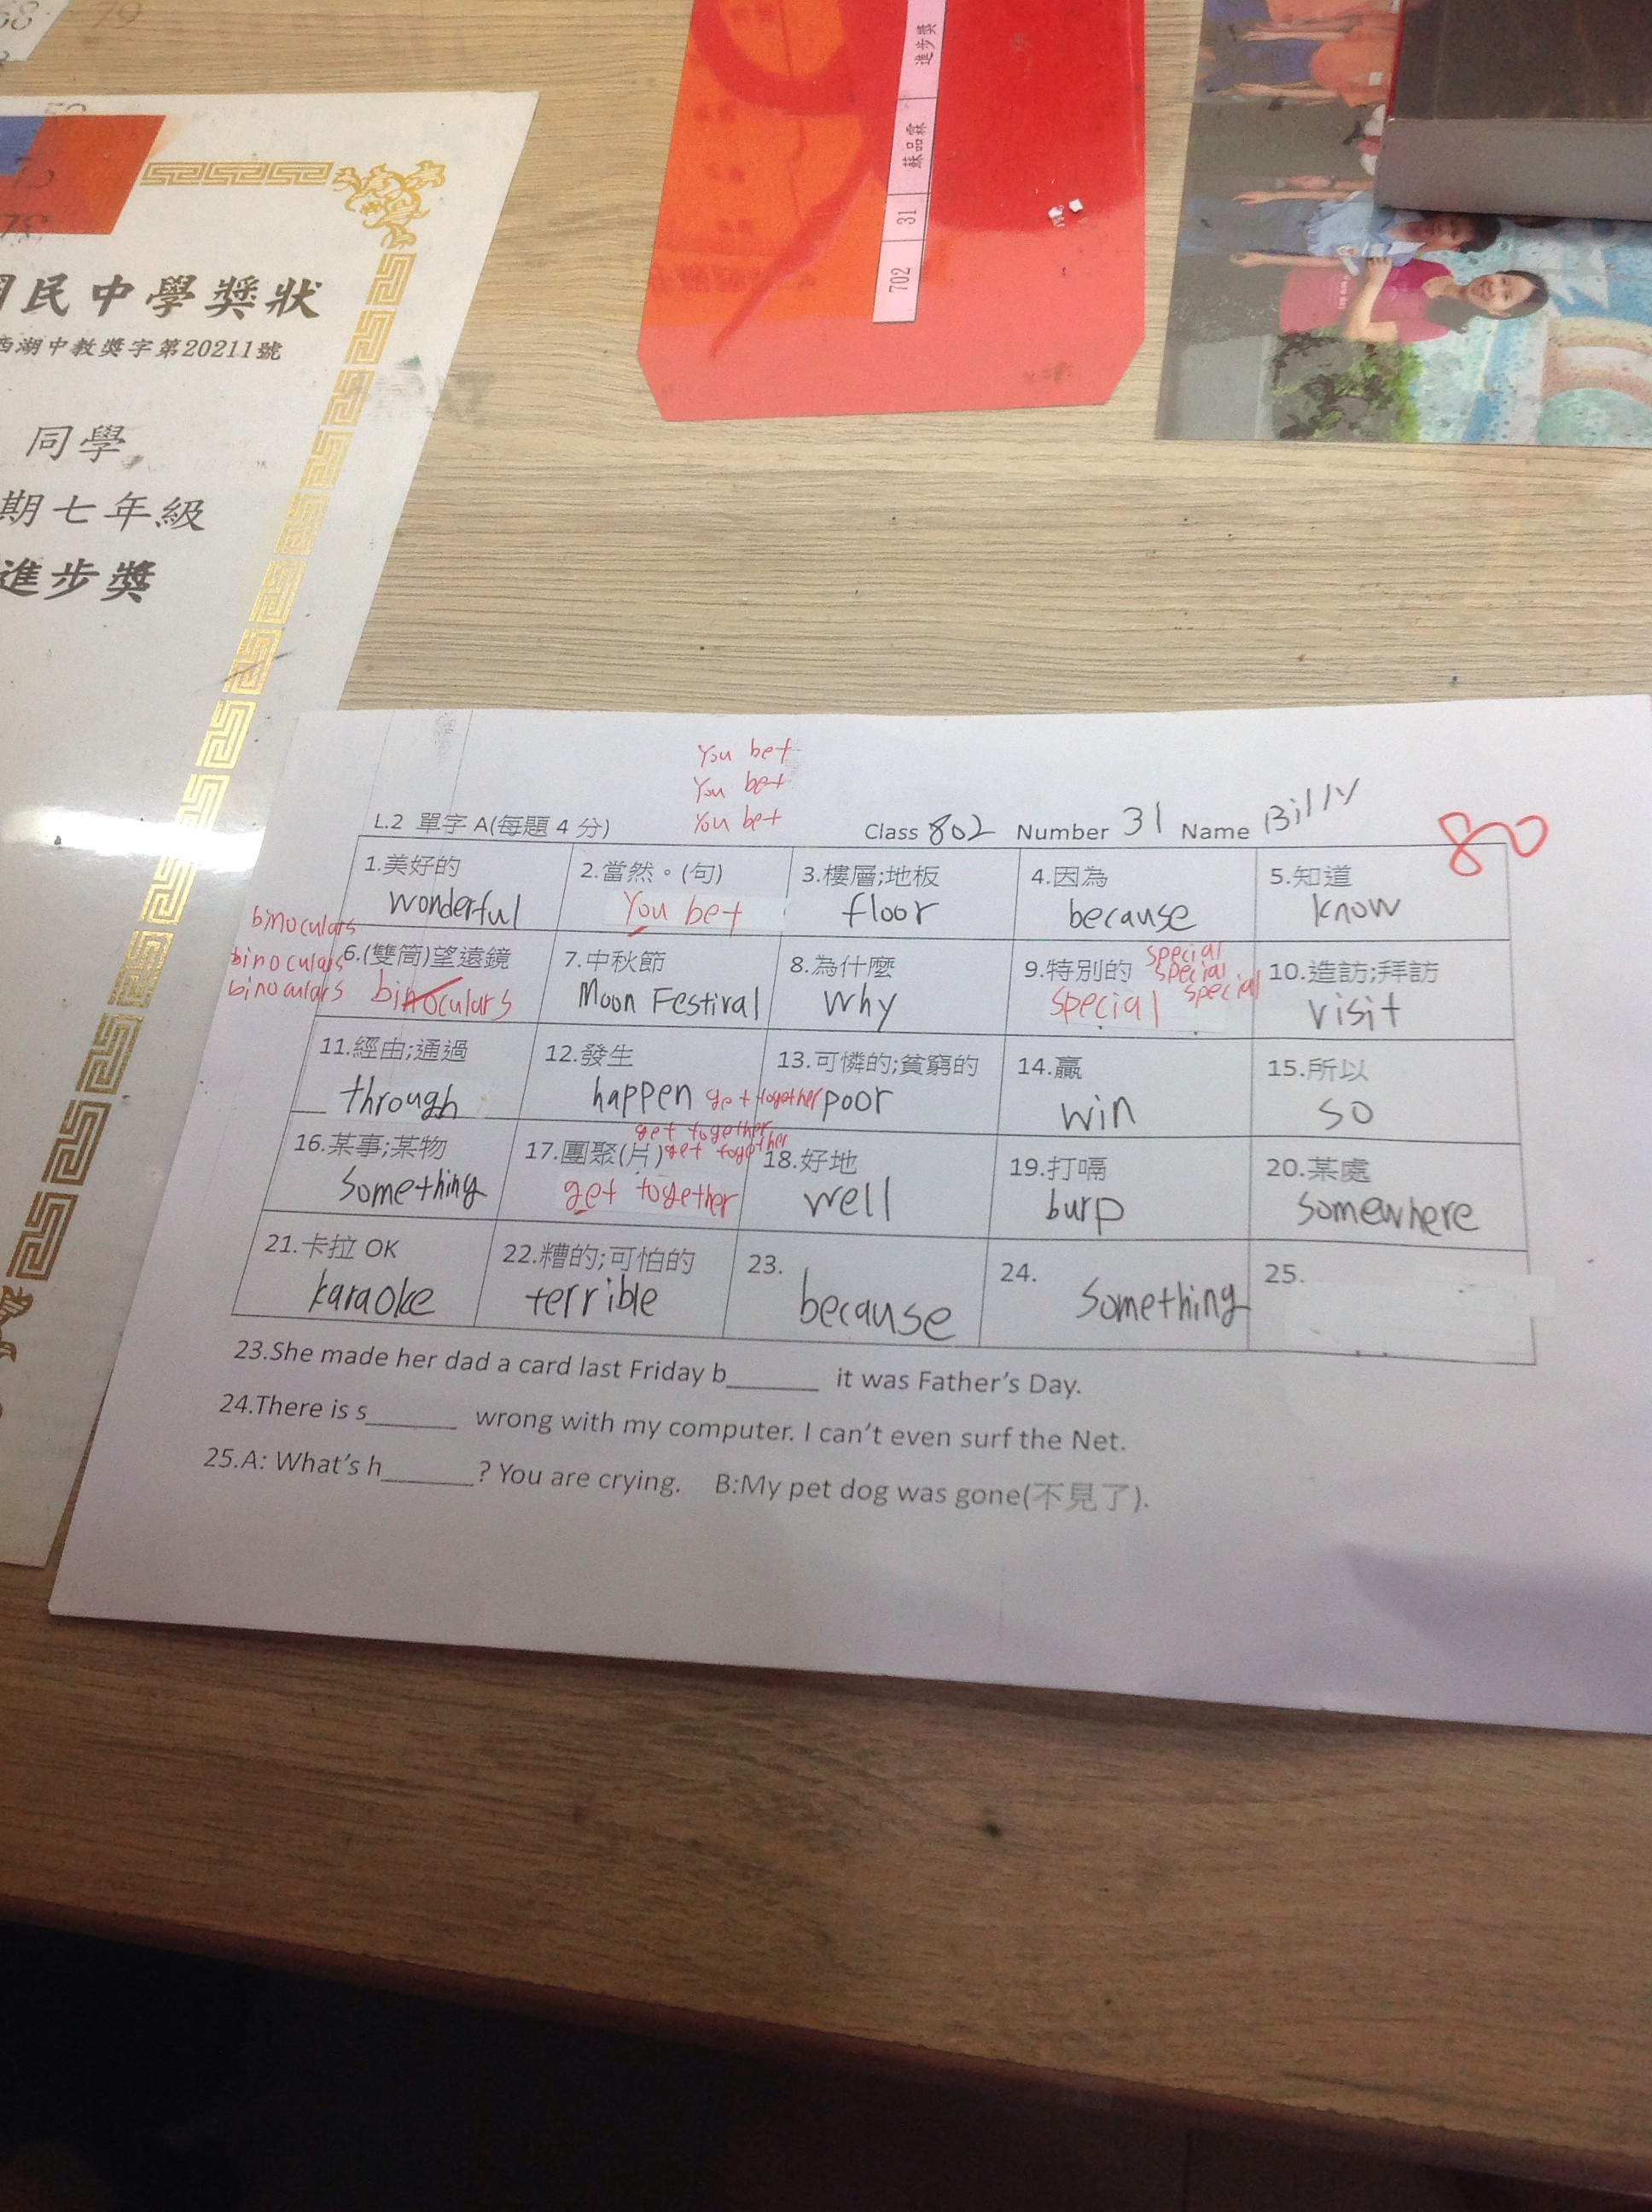 68 79
國民中學獎狀
西湖中教獎字第20211號
同學
期七年級
進步獎
702 31 蘇品霖 進步獎
You bet
You bet
You bet
L.2 單字 A(每題 4 分) Class 802 Number 31 Name Billy
80
1.美好的 2.當然。(句) 3.樓層;地板 4.因為 5.知道
wonderful You bet floor because know
binoculars
binoculars
binoculars
6.(雙筒)望遠鏡 7.中秋節 8.為什麼 9.特別的 10.造訪;拜訪
special
special
special
binoculars Moon Festival why special visit
11.經由;通過 12.發生 13.可憐的;貧窮的 14.贏 15.所以
through happen poor win so
get together
get together
get together
16.某事;某物 17.團聚(片) 18.好地 19.打嗝 20.某處
something get together well burp somewhere
21.卡拉 OK 22.糟的;可怕的 23. 24. 25.
karaoke terrible because something
23.She made her dad a card last Friday b______ it was Father's Day.
24.There is s______ wrong with my computer. I can't even surf the Net.
25.A: What's h______? You are crying. B:My pet dog was gone(不見了).